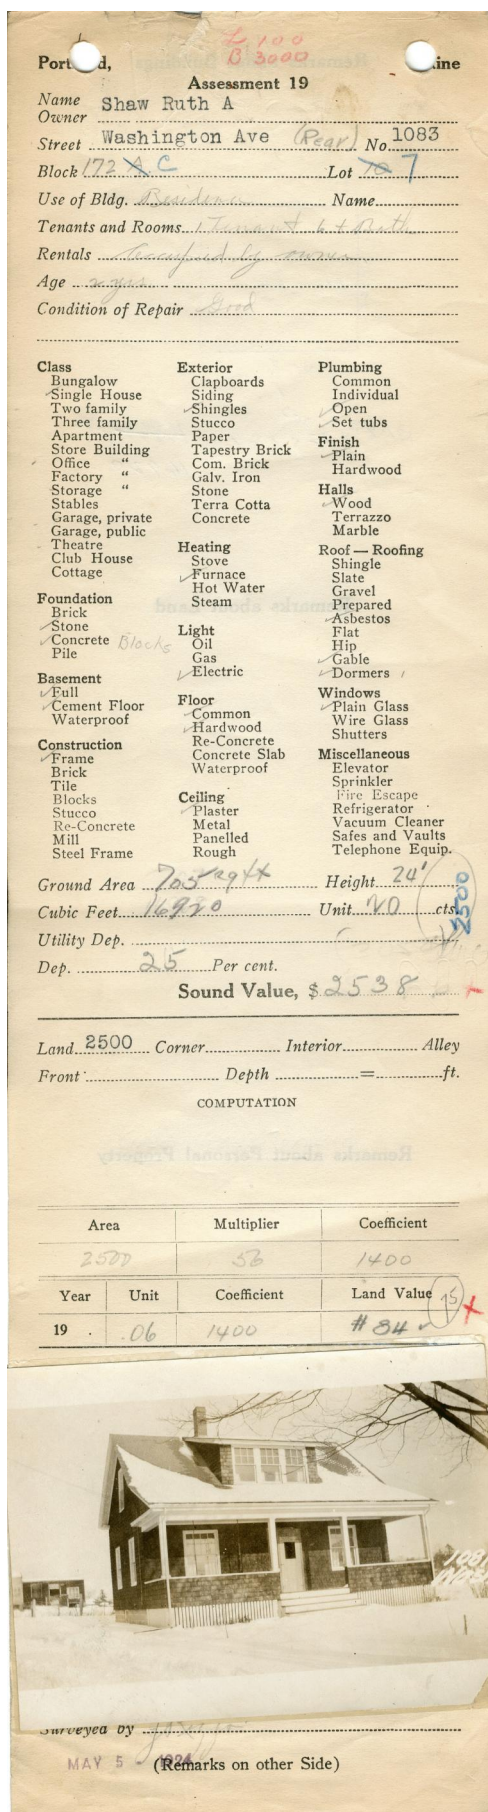 L 100
B 3000
Port d, ine
Assessment 19
Name Owner Shaw Ruth A
Street Washington Ave (Rear) No. 1083
Block 172 A C Lot 10 7
Use of Bldg. Residence Name
Tenants and Rooms 1 Tenant 6 + Bath
Rentals Occupied by owner
Age 2 yrs
Condition of Repair Good
Class
Bungalow
Single House
Two family
Three family
Apartment
Store Building
Office "
Factory "
Storage "
Stables
Garage, private
Garage, public
Theatre
Club House
Cottage
Foundation
Brick
Stone
Concrete Blocks
Pile
Basement
Full
Cement Floor
Waterproof
Construction
Frame
Brick
Tile
Blocks
Stucco
Re-Concrete
Mill
Steel Frame
Exterior
Clapboards
Siding
Shingles
Stucco
Paper
Tapestry Brick
Com. Brick
Galv. Iron
Stone
Terra Cotta
Concrete
Heating
Stove
Furnace
Hot Water
Steam
Light
Oil
Gas
Electric
Floor
Common
Hardwood
Re-Concrete
Concrete Slab
Waterproof
Ceiling
Plaster
Metal
Panelled
Rough
Plumbing
Common
Individual
Open
Set tubs
Finish
Plain
Hardwood
Halls
Wood
Terrazzo
Marble
Roof — Roofing
Shingle
Slate
Gravel
Prepared
Asbestos
Flat
Hip
Gable
Dormers 1
Windows
Plain Glass
Wire Glass
Shutters
Miscellaneous
Elevator
Sprinkler
Fire Escape
Refrigerator
Vacuum Cleaner
Safes and Vaults
Telephone Equip.
Ground Area 705 sq ft Height 24'
Cubic Feet 16920 Unit 20 cts.
2500
Utility Dep.
Dep. 25 Per cent.
Sound Value, $ 2538
Land 2500 Corner Interior Alley
Front Depth = ft.
COMPUTATION
Remarks about Personal Property
Area Multiplier Coefficient
2500 56 1400
Year Unit Coefficient Land Value 75
19 .06 1400 # 84
Surveyed by
MAY 5 - 1924 (Remarks on other Side)